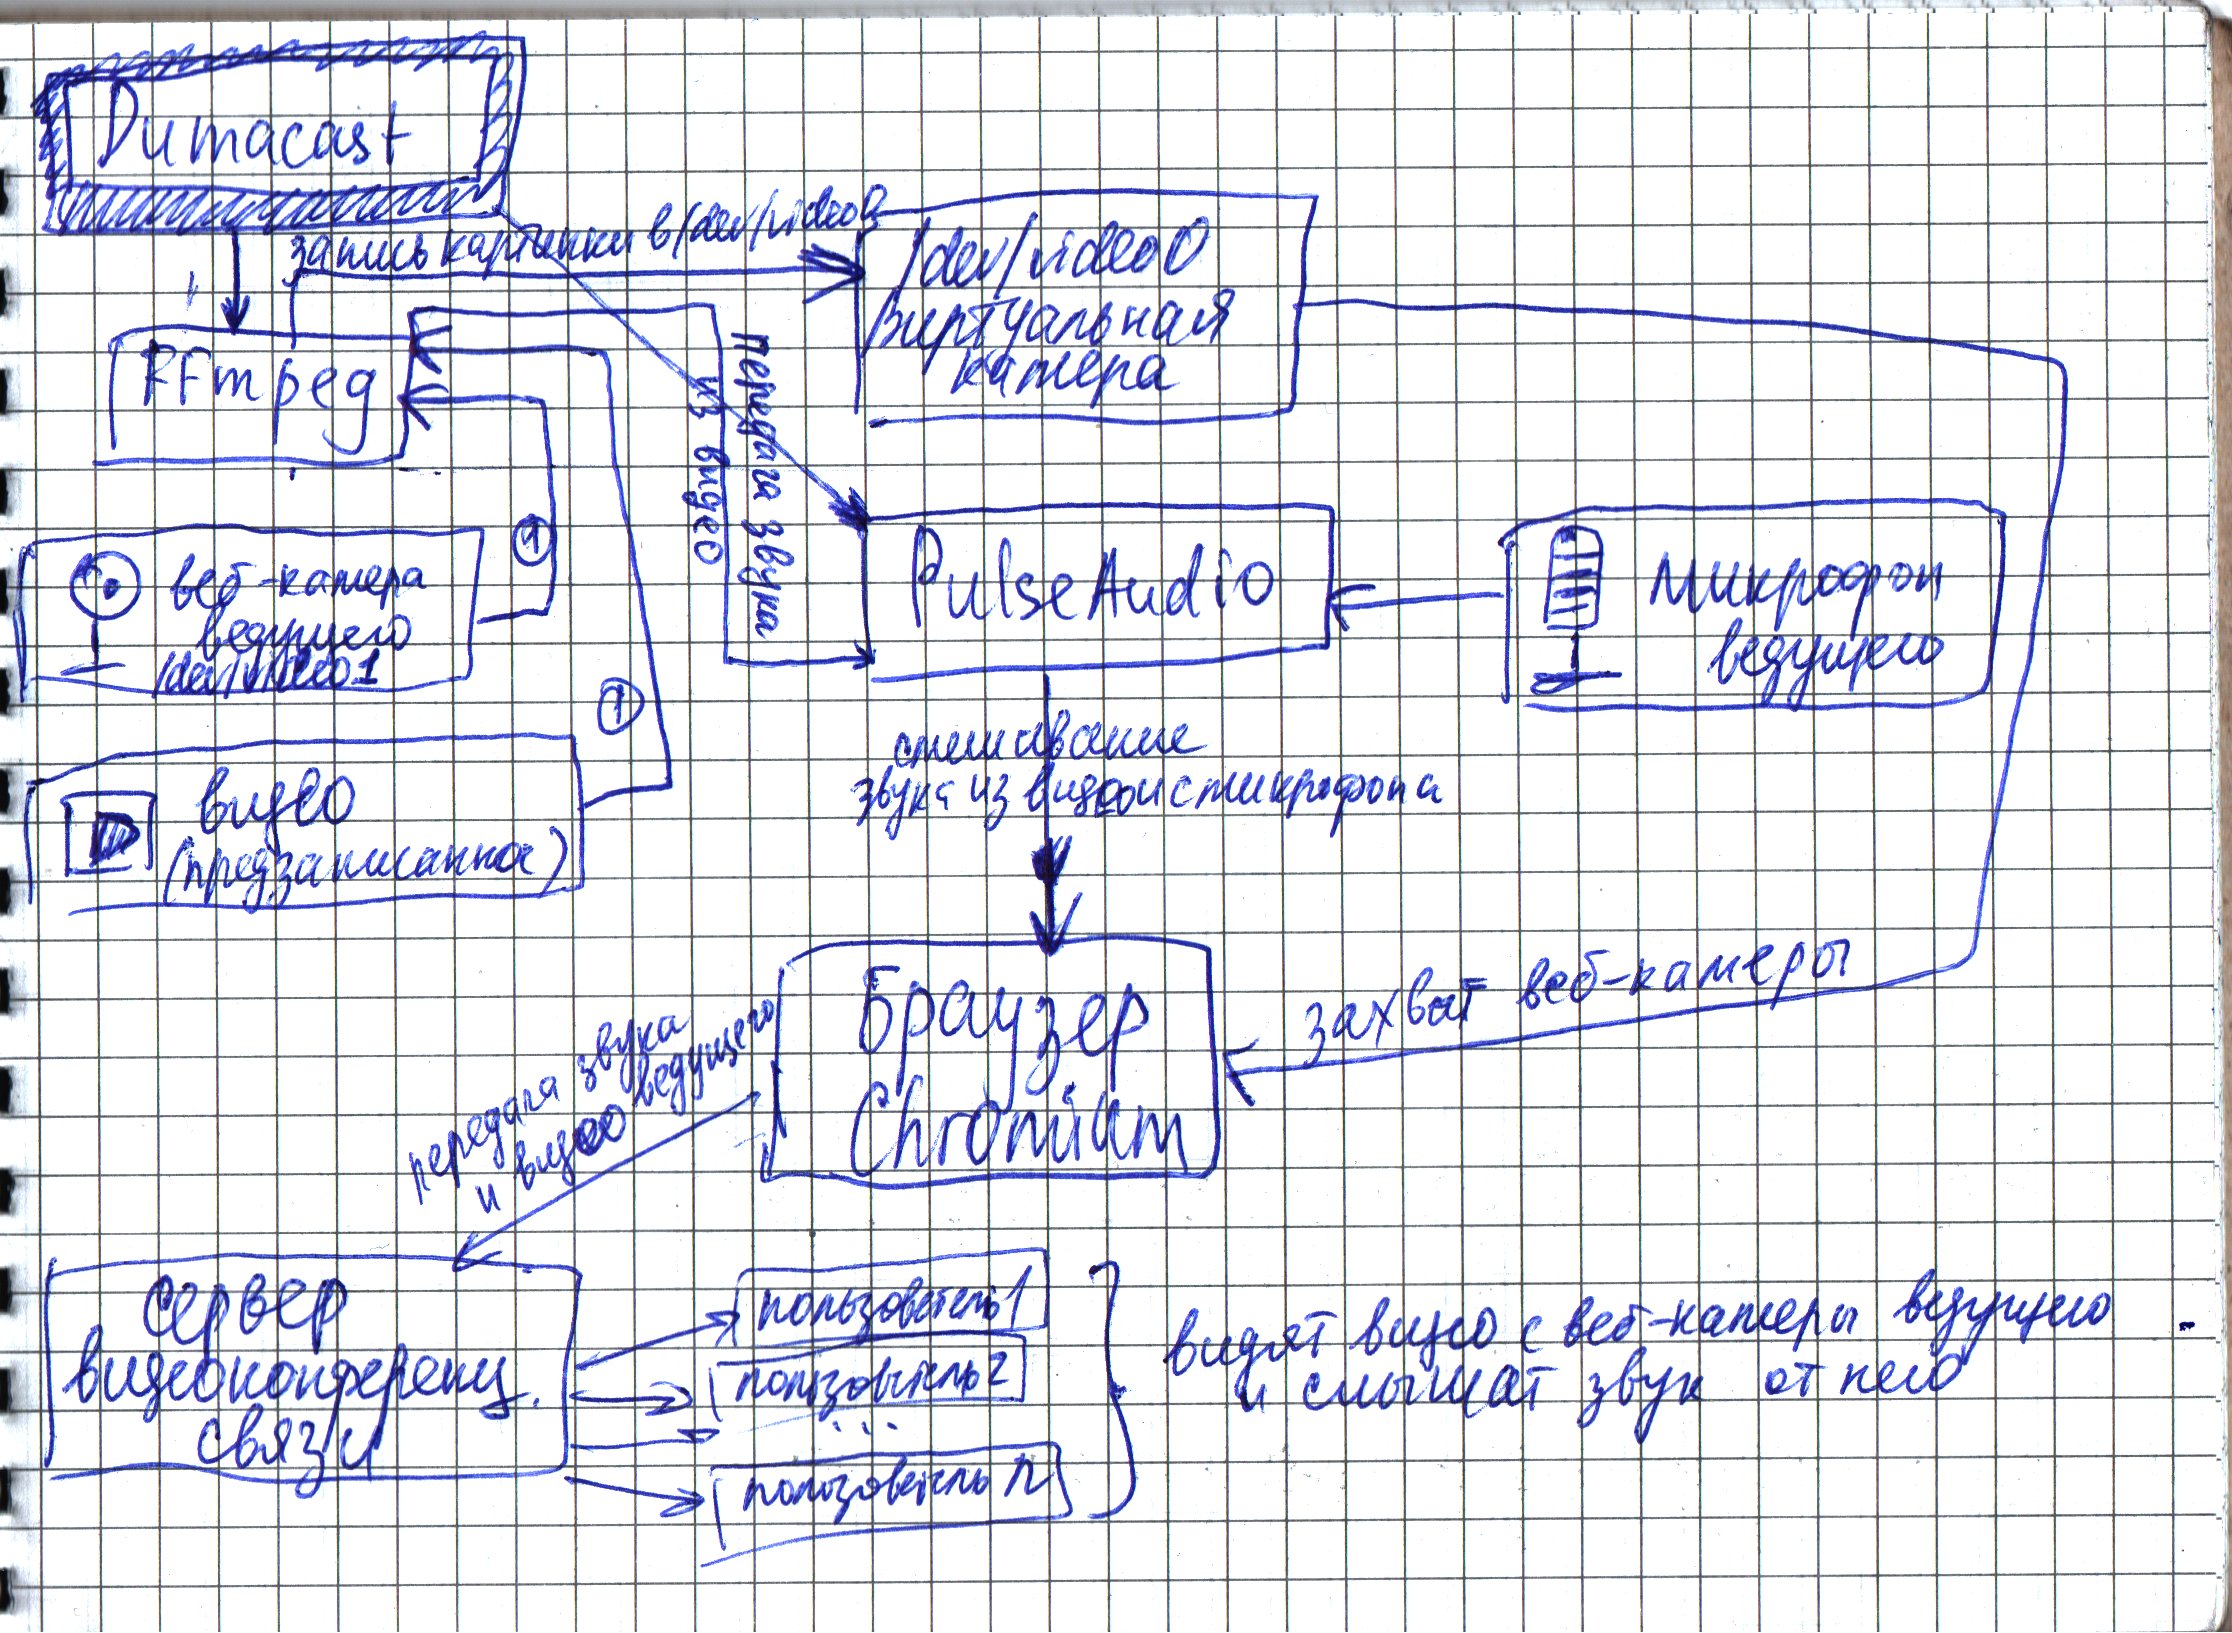 Dumacast
запись картинки в /dev/video0
/dev/video0
виртуальная
камера
FFmpeg
Передача звука
из видео
веб-камера
ведущего
/dev/video1
1
PulseAudio
микрофон
ведущего
1
видео
(предзаписанное)
смешивание
звука из видео и с микрофона
Браузер
Chromium
захват веб-камеры
передача звука
и видео ведущего
сервер
видеоконференц.
связи
пользователь 1
пользователь 2
...
пользователь n
видят видео с веб-камеры ведущего
и слышат звук от него